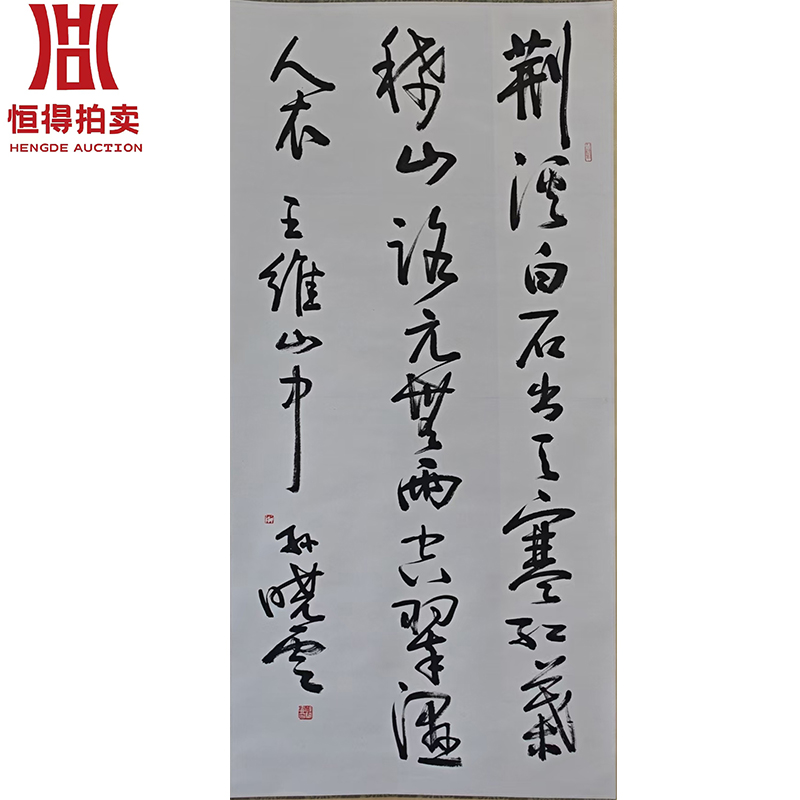 恒得拍卖
HENGDE AUCTION
荆溪白石出天寒紅葉
稀山路元無雨空翠濕
人衣 王維山中 孫曉雲